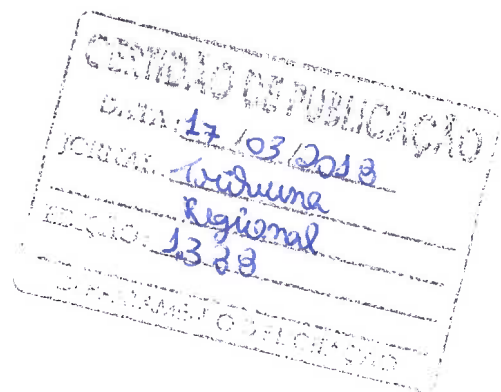 CERTIDÃO DE PUBLICAÇÃO
DATA: 17 /03/2018
JORNAL: Tribuna
Regional
EDIÇÃO:
DEPARTAMENTO DE LICITAÇÃO